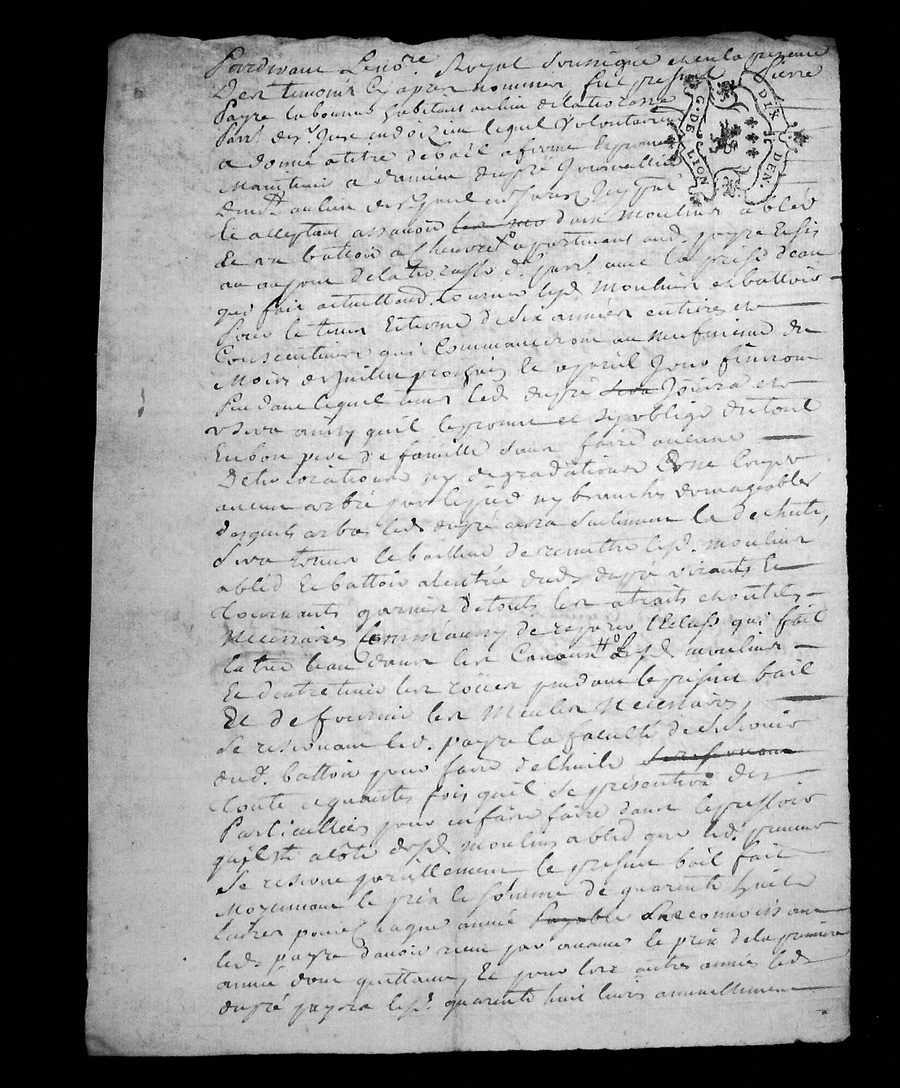 Pardevant Le no.re Royal Soussigné et en la presence
Des temoins cy apres nommés, fut present Pierre
Payre laboureur habitant au lieu de la
Parr. de St Just en doizieu lequel volontairem
a donné a titre de bail a ferme et promet
Maintenir a dupré Journallier
aud. lieu de St Just
Le acceptant assavoir deux moulins a bled
Et un battoir a chenvre appartenant aud. payre et sis
au de la d. parr. avec la prise d'eau
qui fait actuellem. tourner lesd. moulins et battoir
Pour le tems et terme de six années entieres et
Consecutives qui Commanceront au neufvieme du
Mois de Juillet prochain et a pareil Jour finiront
Pendant lequel tems led. dupré Joüira et
usera ainsy qu'il le promet et s'y oblige du tout
En bon pere de famille sans faire aucune
Deterioration ny degradation Ne Couper
aucun arbre par le pied ny branches domageables
desquels arbres led. dupré aura seulement la
Sera tenu le bailleur de remettre lesd. moulins
a bled et battoir a l'entrée dud. dupré virants et
Tournants garnis de touts les atraits et outils
Necessaires Comm'aussy de reparer l'Eclass qui fait
l'eau dans les Canaux desd. moulins
Et d'entretenir les roües pendant le present bail
Et de fournir les Meules Necessaires,
Se reservant led. payre la faculté de se servir
dud. battoir pour faire de l'huile se reservant
toute et quantes fois qu'il se presentera des
Particuliers pour en faire faire dans le pressoir
qu'il a a côté desd. moulins a bled que led. preneur
Se reserve pareillement le present bail fait
Moyennant le prix et somme de quarente huit
Livres pour Chaque année payable reconnoissant
led. payre d'avoir reçu par avance le prix de la premiere
année dont quittance, Et pour les autres années led.
dupré payera lesd. quarente huit livres annuellement
G. DE LION
DIX DEN.